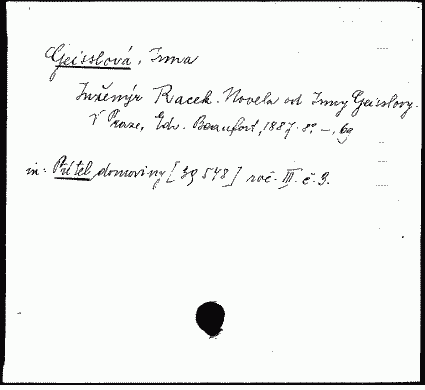 Geisslová, Irma
Inženýr Racek. Novela od Irmy Geisslovy.
V Praze, Edv. Beaufort, 1887. 8° –, 69
in: Přítel domoviny [39548] roč. III. č. 3.